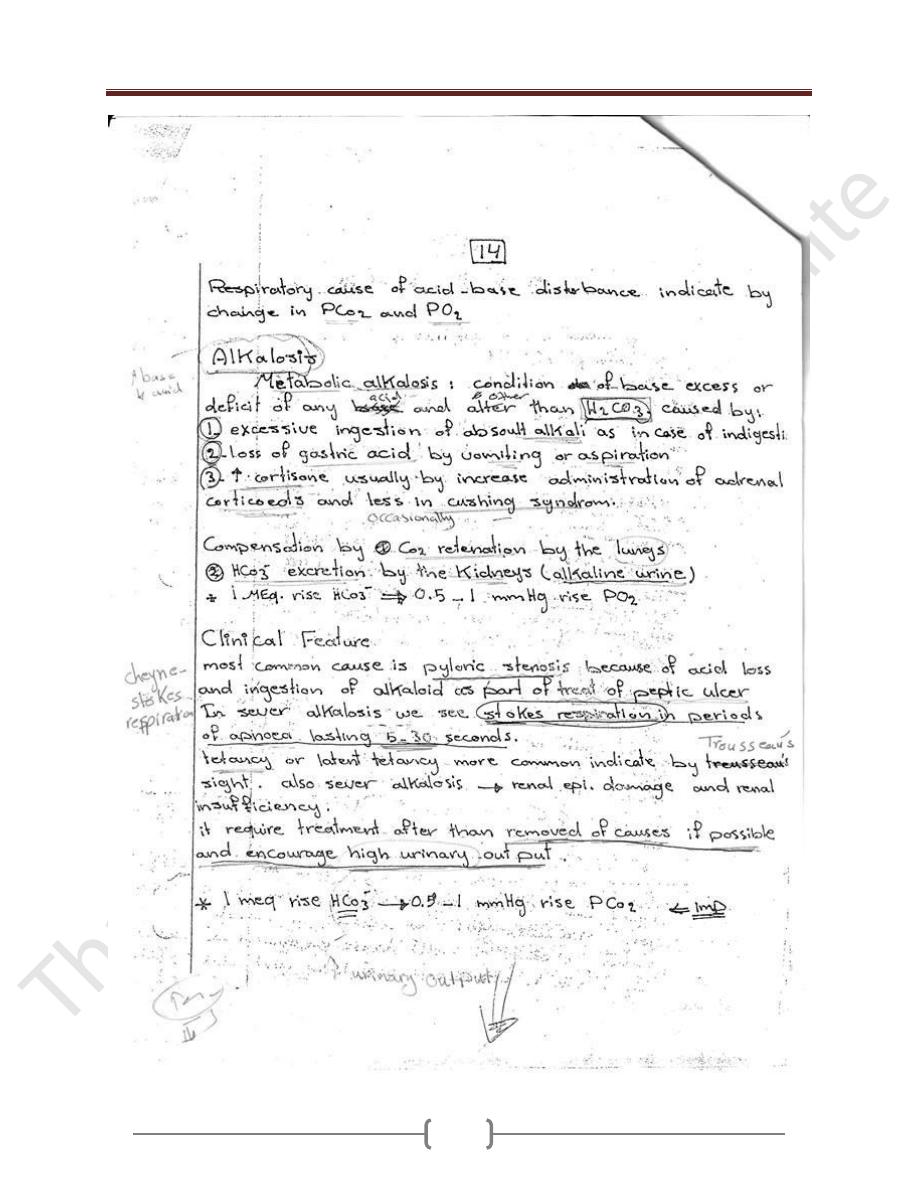 14
Respiratory cause of acid-base disterbance indicate by
change in PCo2 and PO2
Alkalosis
↑ base
↓ acid
Metabolic alkalosis : condition of base excess or
acid & other
deficit of any base and alter than H2CO3 caused by:
1 excessive ingestion of absoult alkali as in case of indigesti
2 - loss of gastric acid by vomiting or aspiration
3 - ↑ cortisone usually by increase administration of adrenal
corticoeds and less in cushing syndrom.
occasionally
Compensation by 1 Co2 retenation by the lungs
2 HCo3⁻ excretion by the Kidneys (alkaline urine)
* 1 MEq. rise HCo3⁻ ⇒ 0.5 - 1 mmHg rise PO2
Clinical Feature
most common cause is pyloric stenosis because of acid loss
and ingestion of alkaloid as part of treat of peptic ulcer
cheyne-
stokes
respiration
In sever alkalosis we see stokes respiration in periods
of apnoea lasting 5-30 seconds.
Trousseau's
tetancy or latent tetancy more common indicate by treusseau's
sight. also sever alkalosis → renal epi. damage and renal
insufficiency.
it require treatment after than removed of causes if possible
and encourage high urinary out put.
* 1 meq rise HCo3⁻ → 0.5 - 1 mmHg rise PCo2 ⇐ imp
↑ urinary output